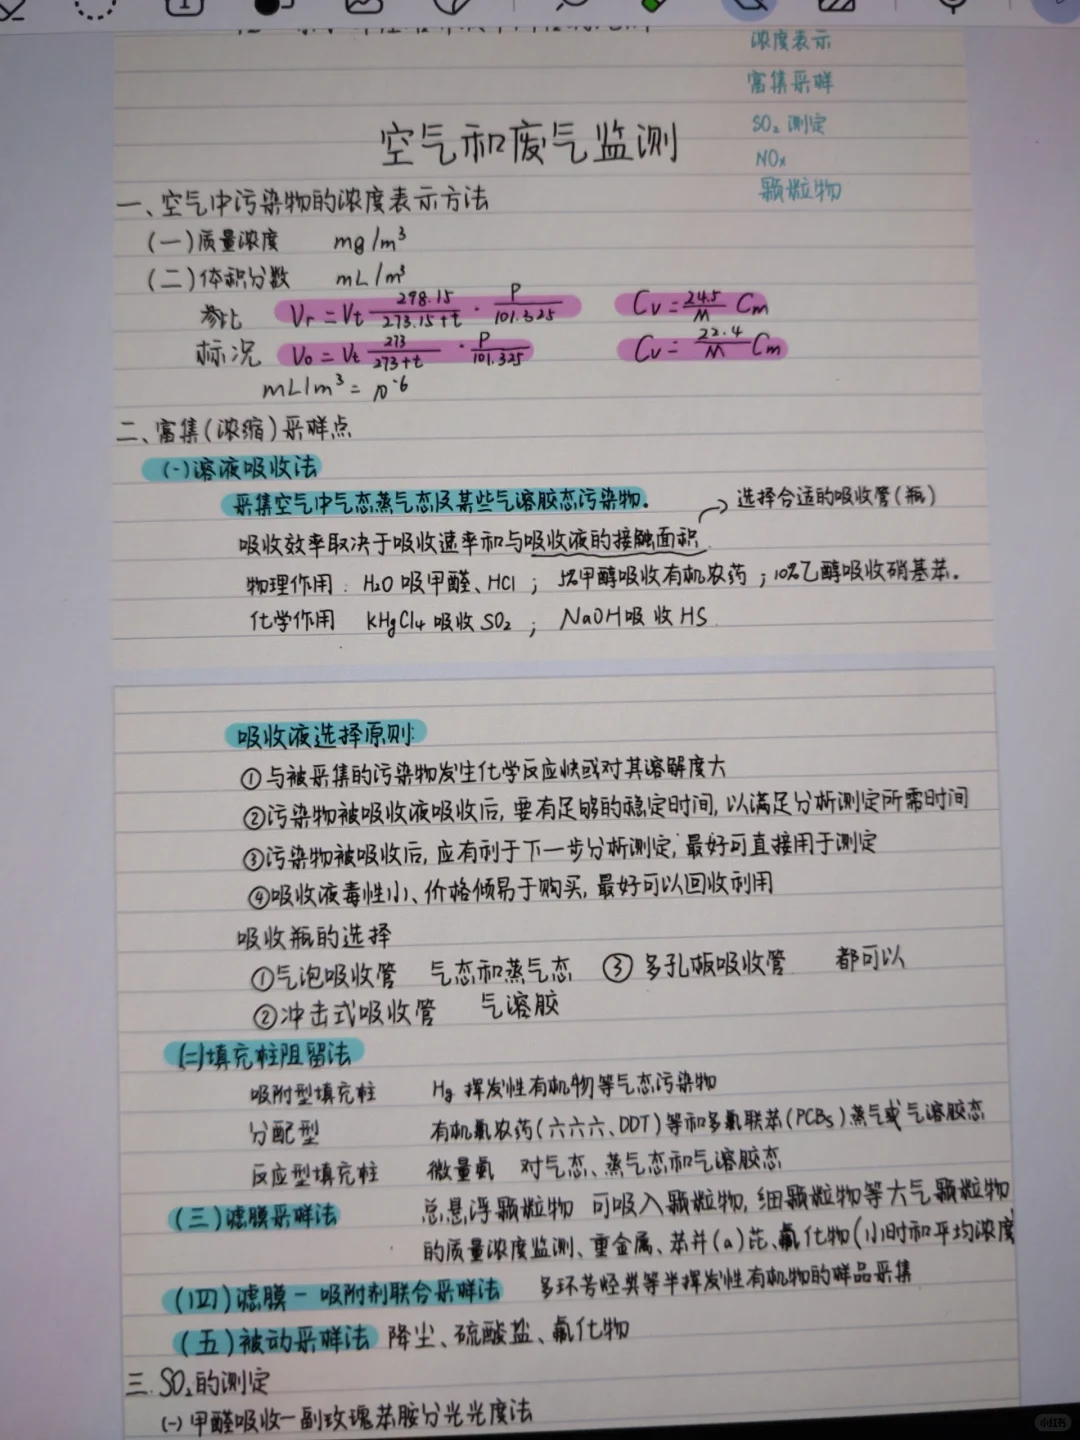 浓度表示
富集采样
SO₂ 测定
NOx
颗粒物
空气和废气监测
一、空气中污染物的浓度表示方法
(一)质量浓度 mg/m³
(二)体积分数 mL/m³
参比 Vr = Vt 298.15/273.15+t · P/101.325 Cv = 24.5/M Cm
标况 V₀ = Vt 273/273+t · P/101.325 Cv = 22.4/M Cm
mL/m³ = 10⁻⁶
二、富集(浓缩)采样点
(一)溶液吸收法
采集空气中气态蒸气态及某些气溶胶态污染物.
→ 选择合适的吸收管(瓶)
吸收效率取决于吸收速率和与吸收液的接触面积
物理作用: H₂O 吸甲醛、HCl ; 5%甲醇吸收有机农药 ; 10%乙醇吸收硝基苯.
化学作用 KHgCl₄ 吸收 SO₂ ; NaOH 吸收 HS
吸收液选择原则:
①与被采集的污染物发生化学反应快或对其溶解度大
②污染物被吸收液吸收后, 要有足够的稳定时间, 以满足分析测定所需时间
③污染物被吸收后, 应有利于下一步分析测定, 最好可直接用于测定
④吸收液毒性小、价格倾易于购买, 最好可以回收利用
吸收瓶的选择
①气泡吸收管 气态和蒸气态 ③ 多孔板吸收管 都可以
②冲击式吸收管 气溶胶
(二)填充柱阻留法
吸附型填充柱 Hg 挥发性有机物等气态污染物
分配型 有机氯农药(六六六、DDT)等和多氯联苯(PCBs)蒸气或气溶胶态
反应型填充柱 微量氨 对气态、蒸气态和气溶胶态
(三)滤膜采样法 总悬浮颗粒物 可吸入颗粒物, 细颗粒物等大气颗粒物
的质量浓度监测、重金属、苯并(a)芘、氟化物(小时和平均浓度
(四)滤膜-吸附剂联合采样法 多环芳烃类等半挥发性有机物的样品采集
(五)被动采样法 降尘、硫酸盐、氟化物
三. SO₂的测定
(一) 甲醛吸收-副玫瑰苯胺分光光度法
小红书